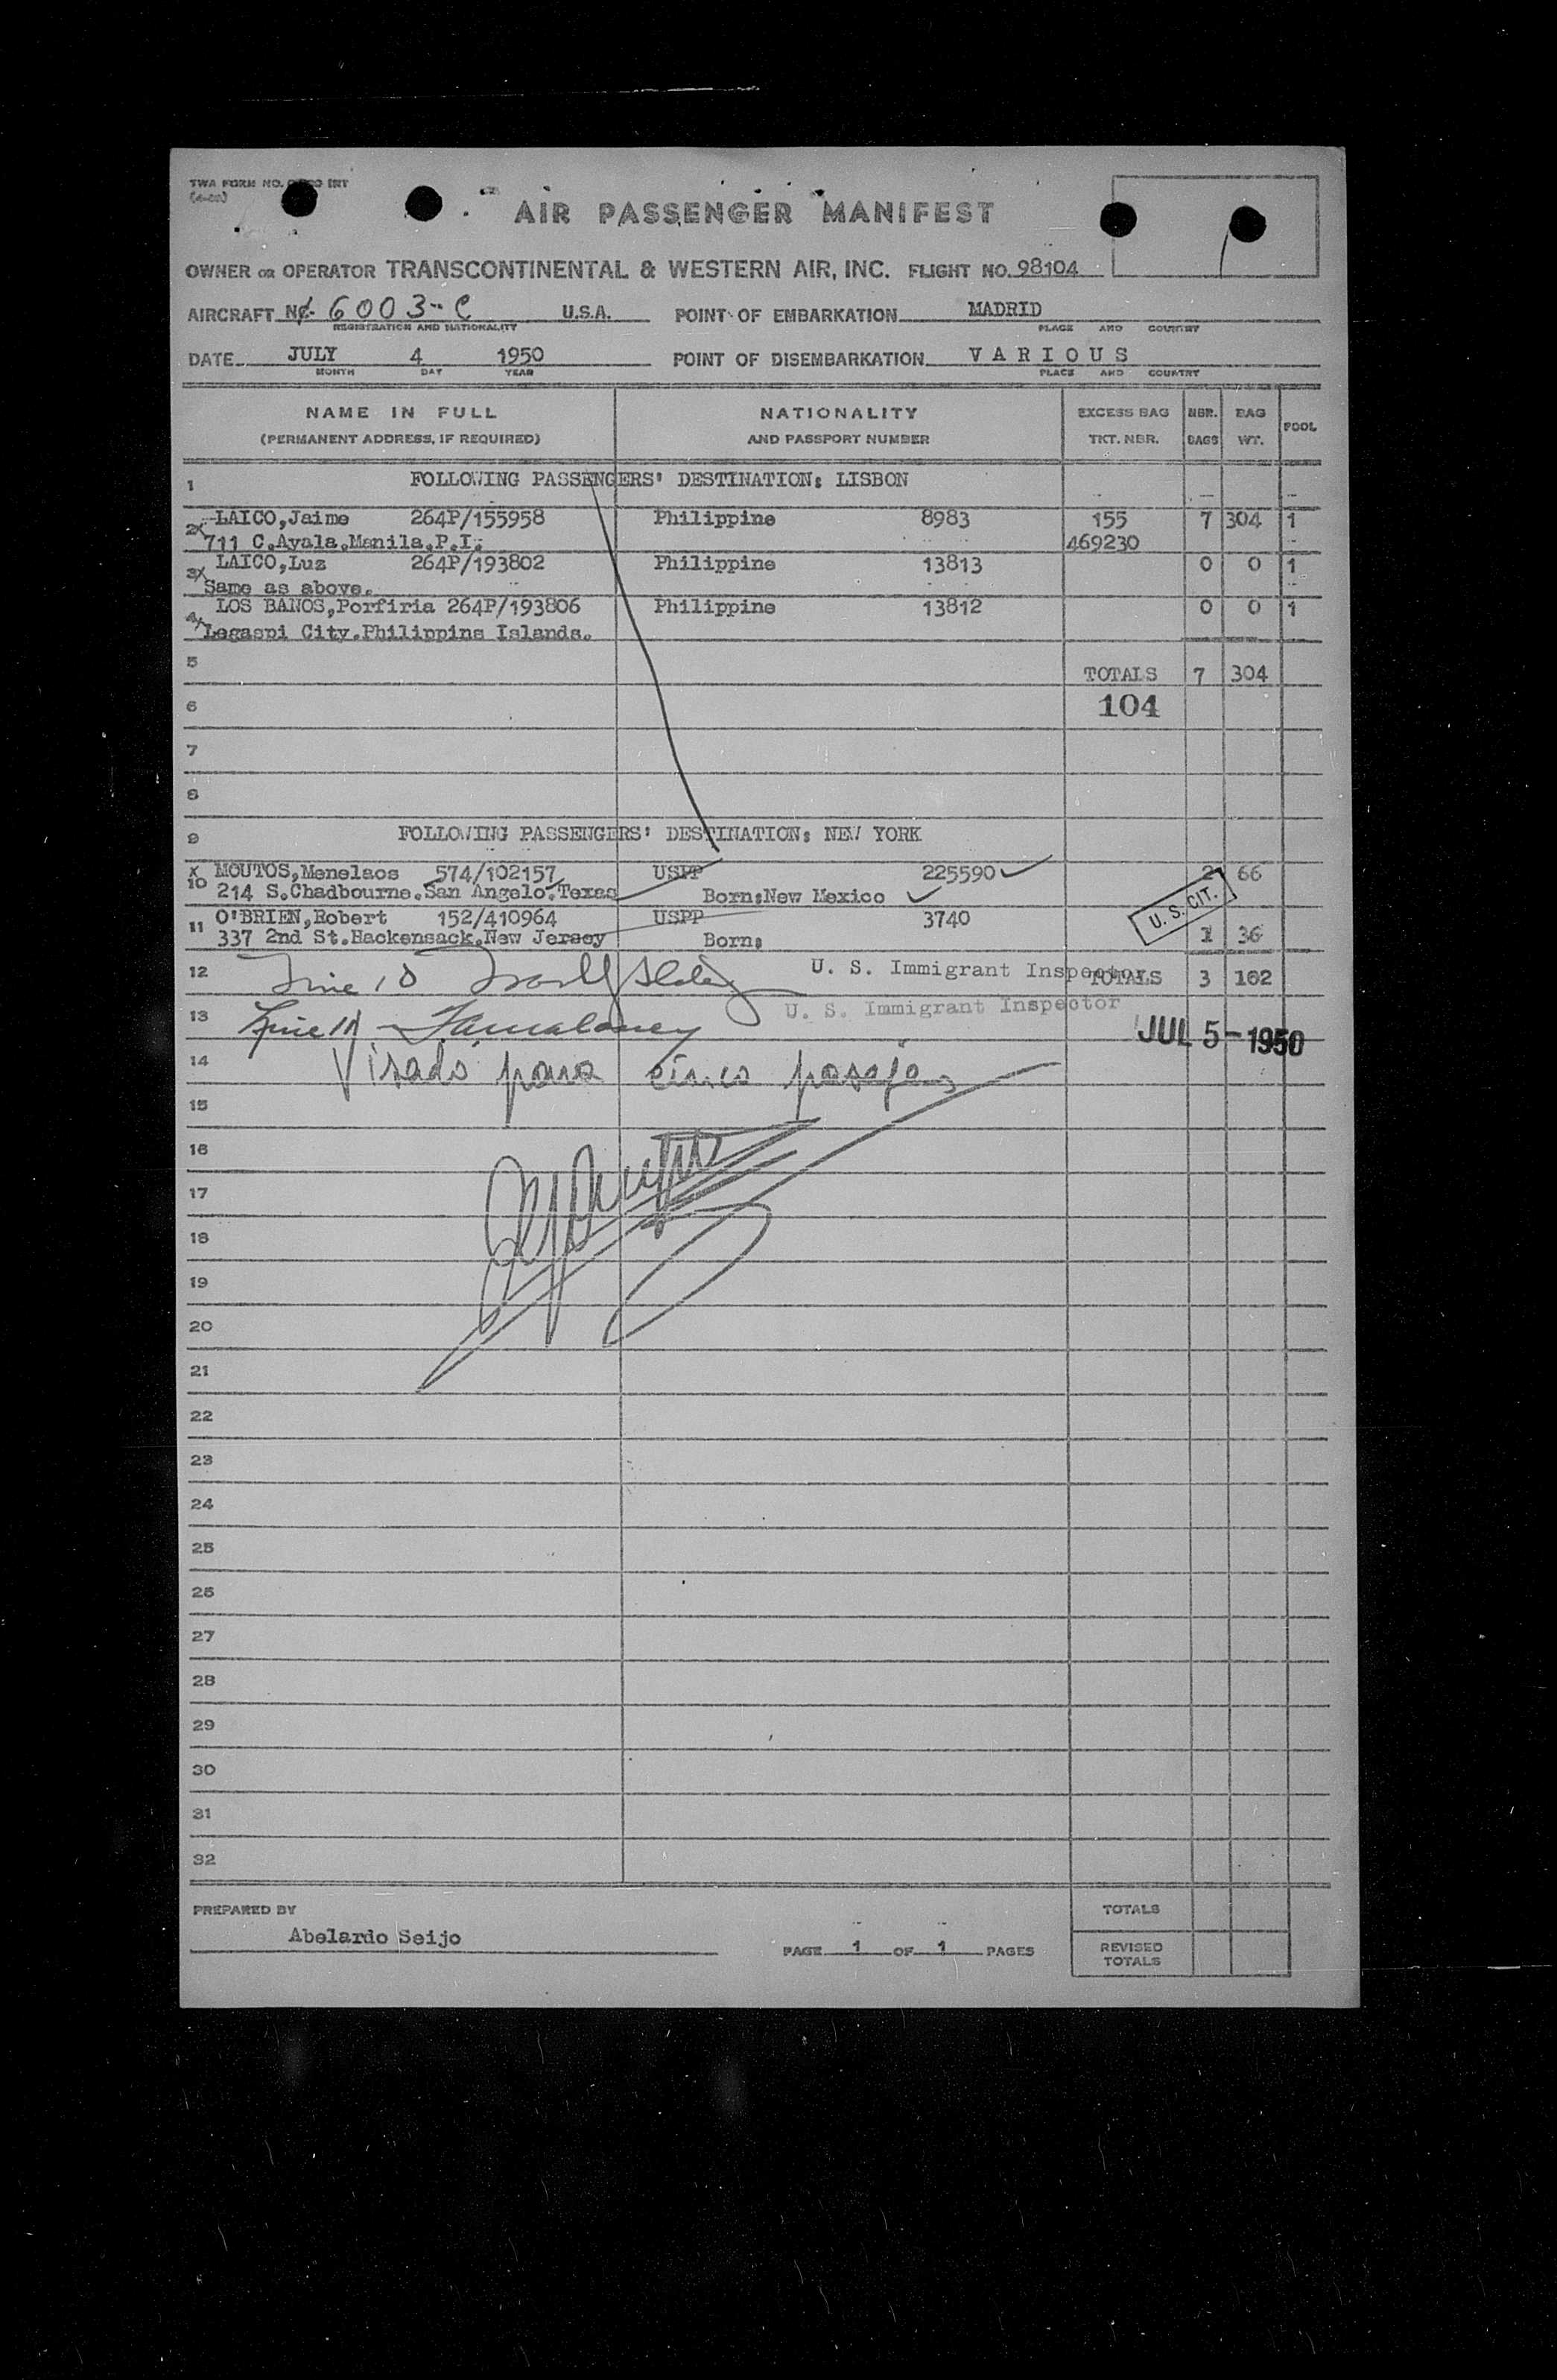 TWA FORM NO. INT
AIR PASSENGER MANIFEST
OWNER OR OPERATOR TRANSCONTINENTAL & WESTERN AIR, INC. FLIGHT NO. 98104
AIRCRAFT NC- 6003-C U.S.A. POINT OF EMBARKATION MADRID
REGISTRATION AND NATIONALITY PLACE AND COUNTRY
DATE JULY 4 1950 POINT OF DISEMBARKATION VARIOUS
MONTH DAY YEAR PLACE AND COUNTRY
NAME IN FULL NATIONALITY EXCESS BAG NBR. BAG POOL
(PERMANENT ADDRESS, IF REQUIRED) AND PASSPORT NUMBER TKT. NBR. BAGS WT.
1 FOLLOWING PASSENGERS' DESTINATION: LISBON
2x LAICO,Jaime 264P/155958 Philippine 8983 155 7 304 1
711 C.Ayala.Manila.P.I. 469230
3x LAICO,Luz 264P/193802 Philippine 13813 0 0 1
Same as above.
4x LOS BANOS,Porfiria 264P/193806 Philippine 13812 0 0 1
Legaspi City.Philippine Islands.
5 TOTALS 7 304
6 104
7
8
9 FOLLOWING PASSENGERS' DESTINATION: NEW YORK
x 10 MOUTOS,Menelaos 574/102157 USPP 225590 2 66
214 S.Chadbourne.San Angelo.Texas Born:New Mexico
U. S. CIT.
11 O'BRIEN,Robert 152/410964 USPP 3740
337 2nd St.Hackensack.New Jersey Born: 1 36
12 Line 10 U. S. Immigrant Inspector TOTALS 3 102
13 Line 11 U. S. Immigrant Inspector
JUL 5 - 1950
14 Visado para cinco pasajeros
15
16
17
18
19
20
21
22
23
24
25
26
27
28
29
30
31
32
PREPARED BY TOTALS
Abelardo Seijo
PAGE 1 OF 1 PAGES REVISED
TOTALS